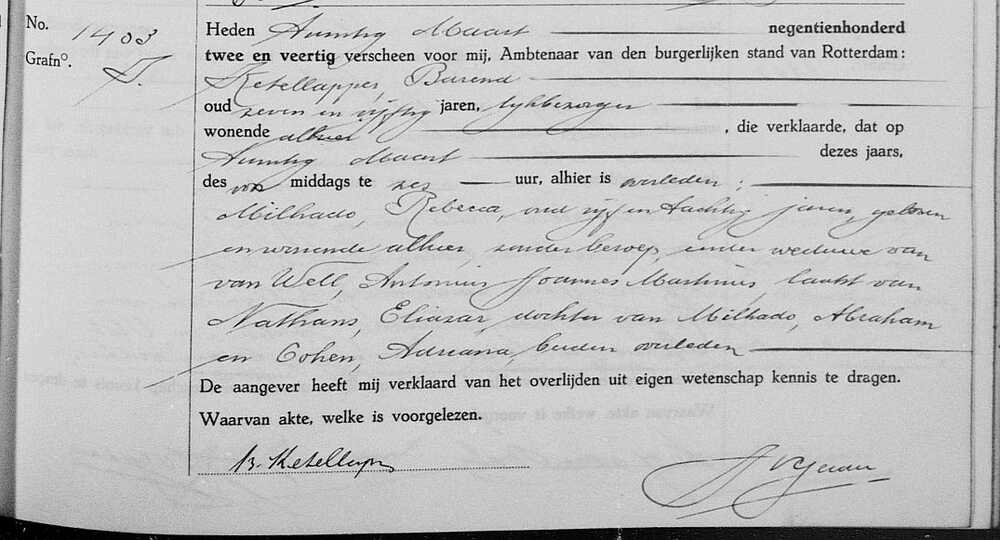 No. 1403
Grafno. J.
Heden Twintig Maart negentienhonderd
twee en veertig verscheen voor mij, Ambtenaar van den burgerlijken stand van Rotterdam:
Ketellapper, Barend
oud zeven en vijftig jaren, lijkbezorger
wonende alhier, die verklaarde, dat op
Twintig Maart dezes jaars,
des voor middags te zes uur, alhier is overleden:
Milhado, Rebecca, oud vijf en tachtig jaren, geboren
en wonende alhier, zonder beroep, eerder weduwe van
van Well, Antonius Joannes Martinus, laatst van
Nathans, Eliazar, dochter van Milhado, Abraham
en Cohen, Adriana, beiden overleden
De aangever heeft mij verklaard van het overlijden uit eigen wetenschap kennis te dragen.
Waarvan akte, welke is voorgelezen.
B. Ketellapper